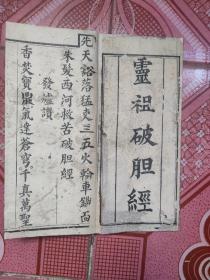 靈祖破胆經
先天豁落猛吏三五火輪車勅西
朱髮西河救苦破胆經
發爐讚
香焚寶鼎氣達蒼穹千真萬聖